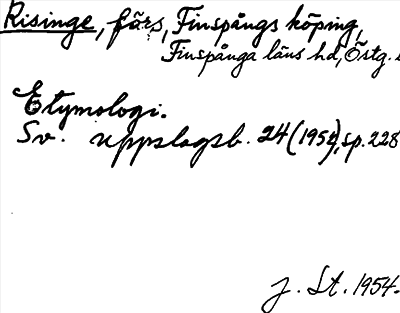 Risinge, förs, Finspångs köping,
Finspånga läns hd, Östg.
Etymologi.
Sv. uppslagsb. 24 (1952), sp. 228
J. St. 1954.